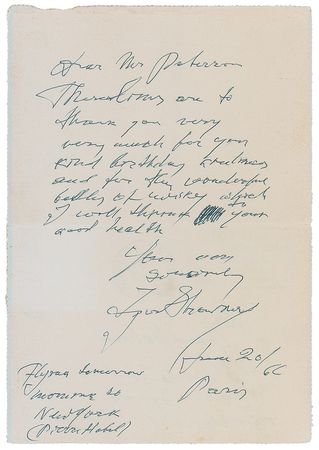 Dear Mr Peterson
These lines are to
thank you very
very much for your
kind birthday
and for the wonderful
bottle of wisky which
I will to your
good health
Yours very
sincerely
Igor Strawinsky
June 20/66
Paris
Flying tomorrow
morning to
New York
(Pierre Hotel)